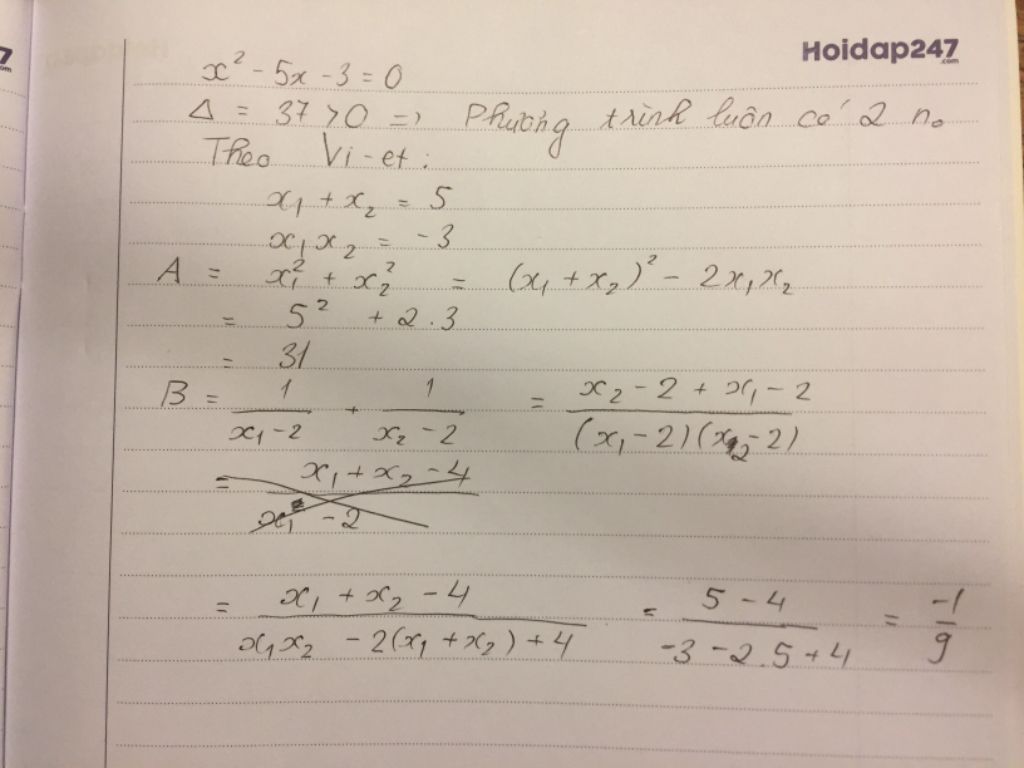 Hoidap247
.com
x² - 5x - 3 = 0
Δ = 37 > 0 => Phương trình luôn có 2 n₀
Theo Vi-et :
x₁ + x₂ = 5
x₁x₂ = -3
A = x₁² + x₂² = (x₁ + x₂)² - 2x₁x₂
= 5² + 2.3
= 31
B = 1/(x₁ - 2) + 1/(x₂ - 2) = (x₂ - 2 + x₁ - 2)/((x₁ - 2)(x₂ - 2))
= (x₁ + x₂ - 4)/(x₁ - 2)
= (x₁ + x₂ - 4)/(x₁x₂ - 2(x₁ + x₂) + 4) = (5 - 4)/(-3 - 2.5 + 4) = -1/9